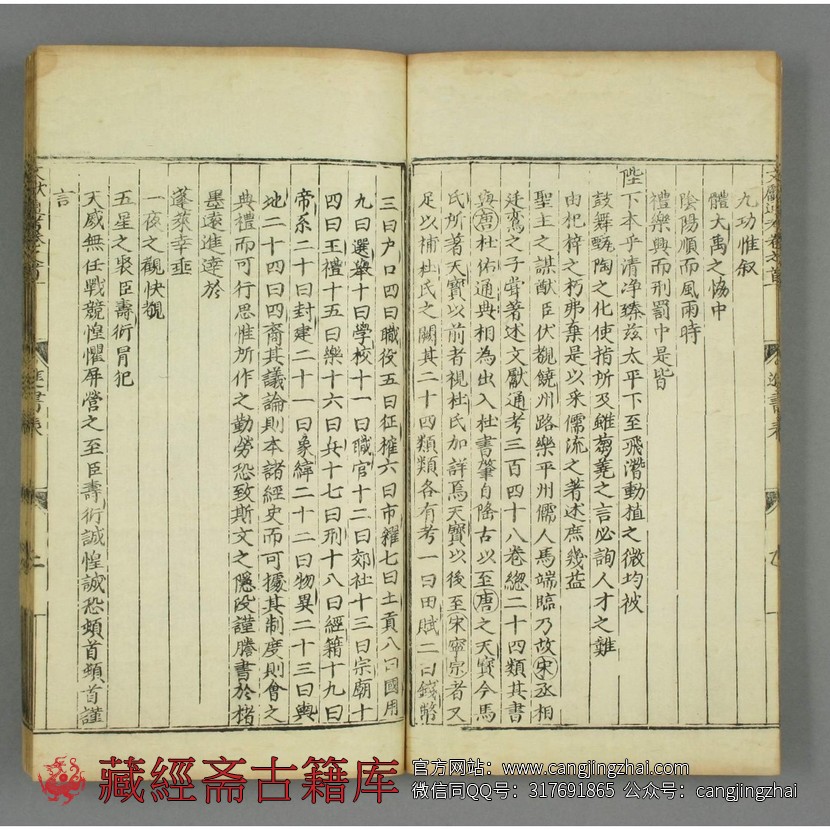 九功惟叙
體大禹之恊中
陰陽順而風雨時
禮樂興而刑罰中是皆
陛下本乎清净臻兹太平下至飛潛動植之微均被
鼓舞甄陶之化使指所及雖蒭蕘之言必詢人才之難
由杞梓之朽弗棄是以采儒流之著述庶幾益
聖主之謀猷臣伏覩饒州路樂平州儒人馬端臨乃故宋丞相
廷鸞之子嘗著述文獻通考三百四十八卷緫二十四類其書
與唐杜佑通典相為出入杜書肇自隆古以至唐之天寳今馬
氏所著天寳以前者視杜氏加詳焉天寳以後至宋寜宗者又
足以補杜氏之闕其二十四類類各有考一曰田賦二曰錢幣
三曰户口四曰職役五曰征榷六曰市糴七曰土貢八曰國用
九曰選舉十曰學校十一曰職官十二曰郊社十三曰宗廟十
四曰王禮十五曰樂十六曰兵十七曰刑十八曰經籍十九曰
帝系二十曰封建二十一曰象緯二十二曰物異二十三曰輿
地二十四曰四裔其議論則本諸經史而可據其制度則會之
典禮而可行思惟所作之勤勞恐致斯文之隱没謹謄書於楮
墨遠進達於
蓬萊幸垂
一夜之觀快覩
五星之聚臣壽衍冐犯
天威無任戰競惶懼屏營之至臣壽衍誠惶誠恐頓首頓首謹
言
進書表
進書表
二
藏經斋古籍库
官方网站：www.cangjingzhai.com
微信同QQ号：317691865 公众号：cangjingzhai